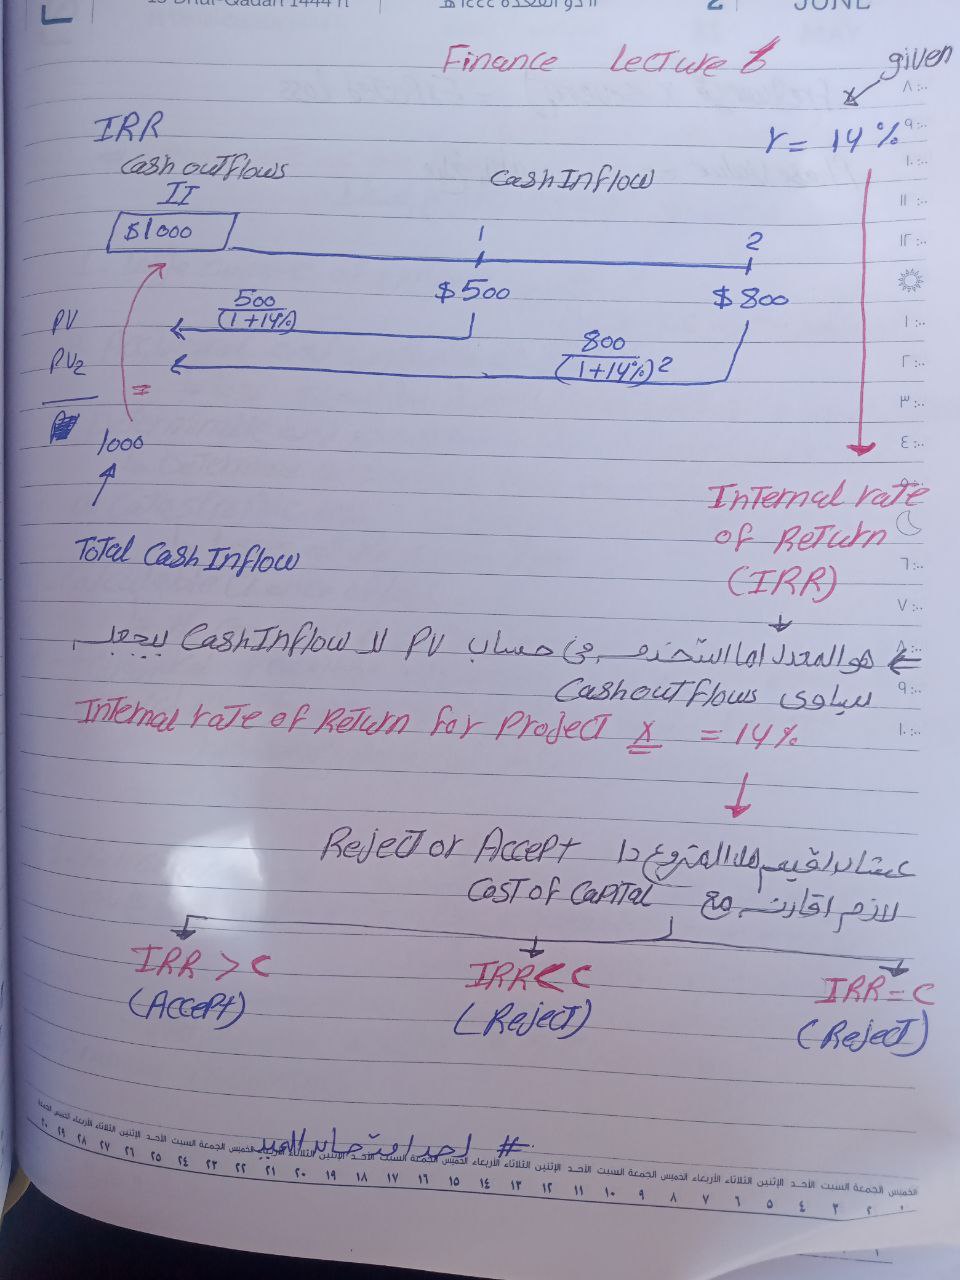 2 JUNE
Finance Lecture 6
given
r = 14%
IRR
Cash outflows
Cash Inflow
II
$1000
1
2
$500
$800
PV
500
(1+14%)
PV2
800
(1+14%)2
=
1000
Total Cash Inflow
Internal rate
of Return
(IRR)
هو المعدل لما استخدمه في حساب PV لل Cash Inflow يجعل
يساوى Cash out flows
Internal rate of Return for Project X = 14%
Reject or Accept
عشان اقيم هذا المشروع دا
لازم اقارنه مع Cost of Capital
IRR > C
IRR < C
IRR = C
(Accept)
(Reject)
(Reject)
#
الخميس الجمعة السبت الأحد الإثنين الثلاثاء الأربعاء الخميس الجمعة السبت الأحد الإثنين الثلاثاء الأربعاء الخميس الجمعة السبت الأحد الإثنين الثلاثاء الأربعاء الخميس الجمعة السبت الأحد الإثنين الثلاثاء الأربعاء الخميس الجمعة
١ ٢ ٣ ٤ ٥ ٦ ٧ ٨ ٩ ١٠ ١١ ١٢ ١٣ ١٤ ١٥ ١٦ ١٧ ١٨ ١٩ ٢٠ ٢١ ٢٢ ٢٣ ٢٤ ٢٥ ٢٦ ٢٧ ٢٨ ٢٩ ٣٠